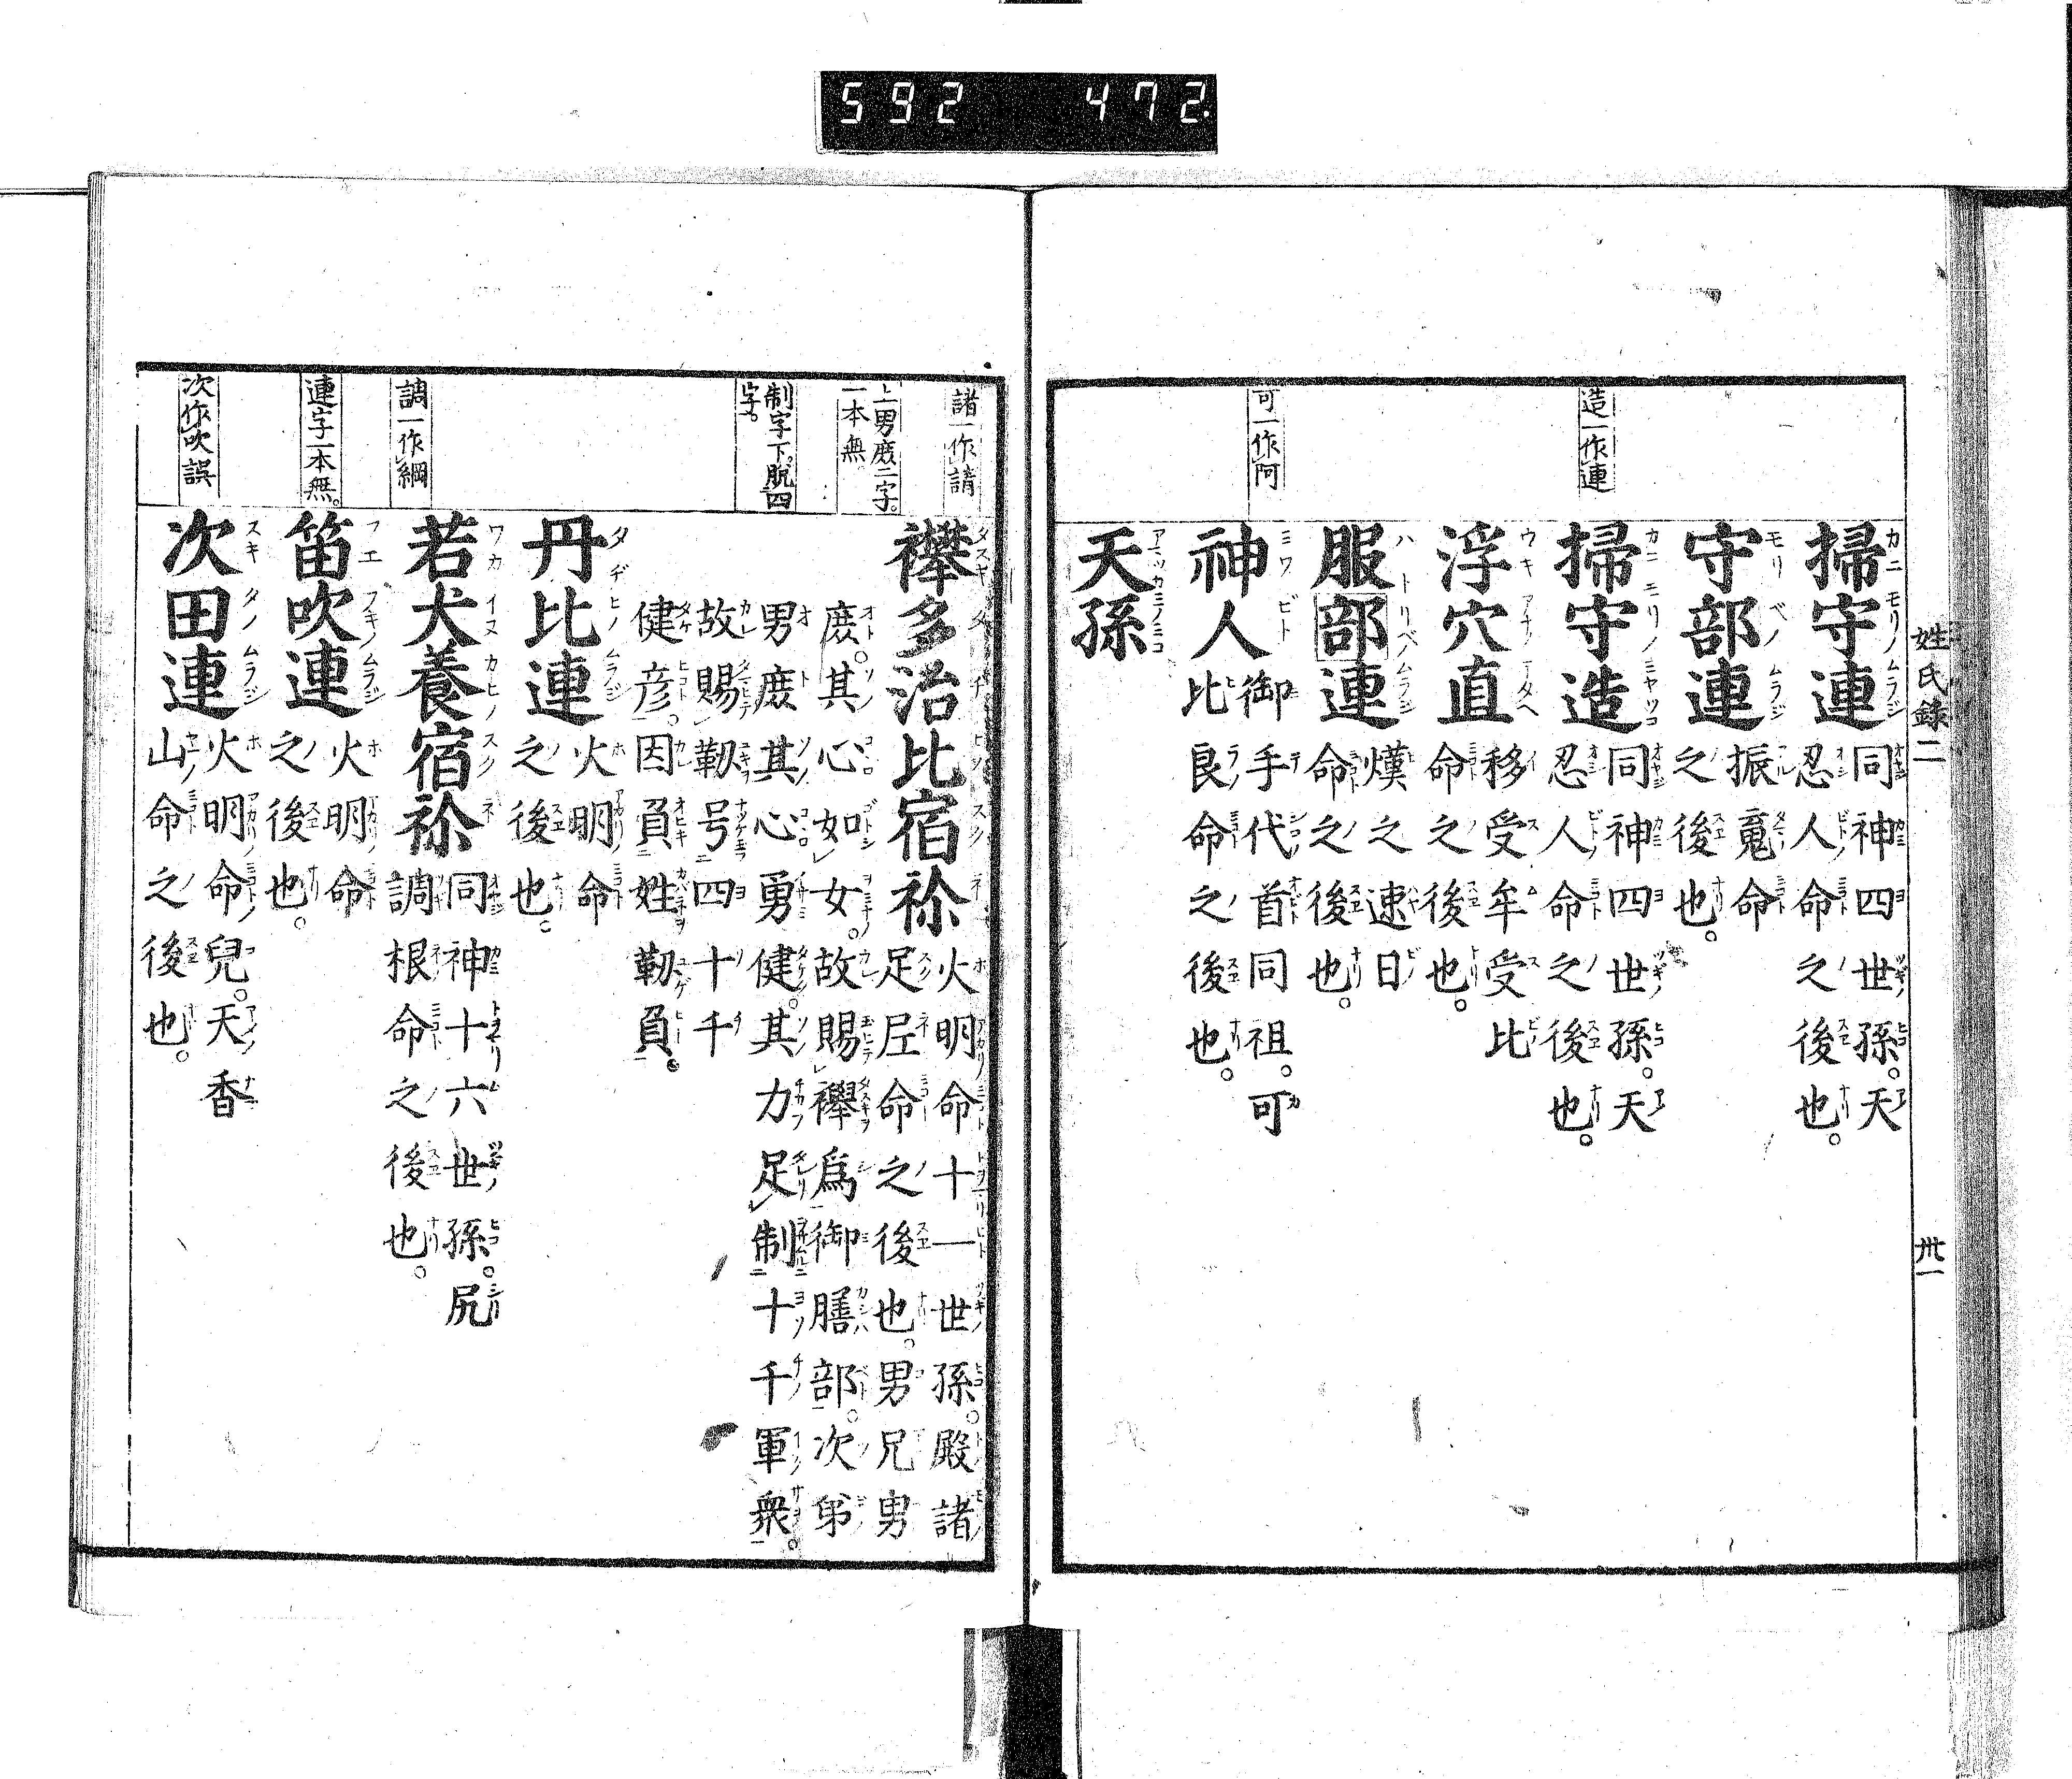 592 472
姓氏錄二
卅一
造一作連
可一作阿
掃守連 同神四世孫。天
忍人命之後也。
守部連 振魂命
之後也。
掃守造 同神四世孫。天
忍人命之後也。
浮穴直 移受牟受比
命之後也。
服部連 熯之速日
命之後也。
神人 御手代首同祖。可
比良命之後也。
天孫
諸一作請
上男庶二字。
一本無
制字下脫四
字。
調一作綱
連字一本無。
次作吹誤
襷多治比宿祢 火明命十一世孫。殿諸
足尼命之後也。男兄男
庶。其心如女。故賜襷爲御膳部。次弟
男庶其心勇健。其力足制十千軍衆。
故賜靱号四十千
健彦。因負姓靱負。
丹比連 火明命
之後也。
若犬養宿祢 同神十六世孫。尻
調根命之後也。
笛吹連 火明命
之後也。
次田連 火明命兒。天香
山命之後也。